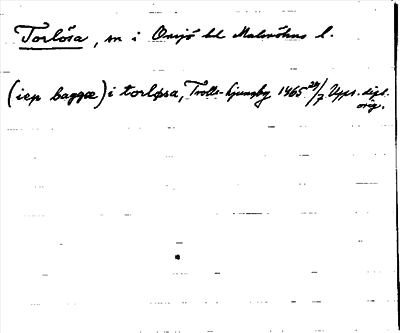 Torlösa, sn i Onsjö hd Malmöhus l.
(iep bagge) i torløsa, Trolle-Ljungby 1465 29/7 Upps. dipl.
orig.